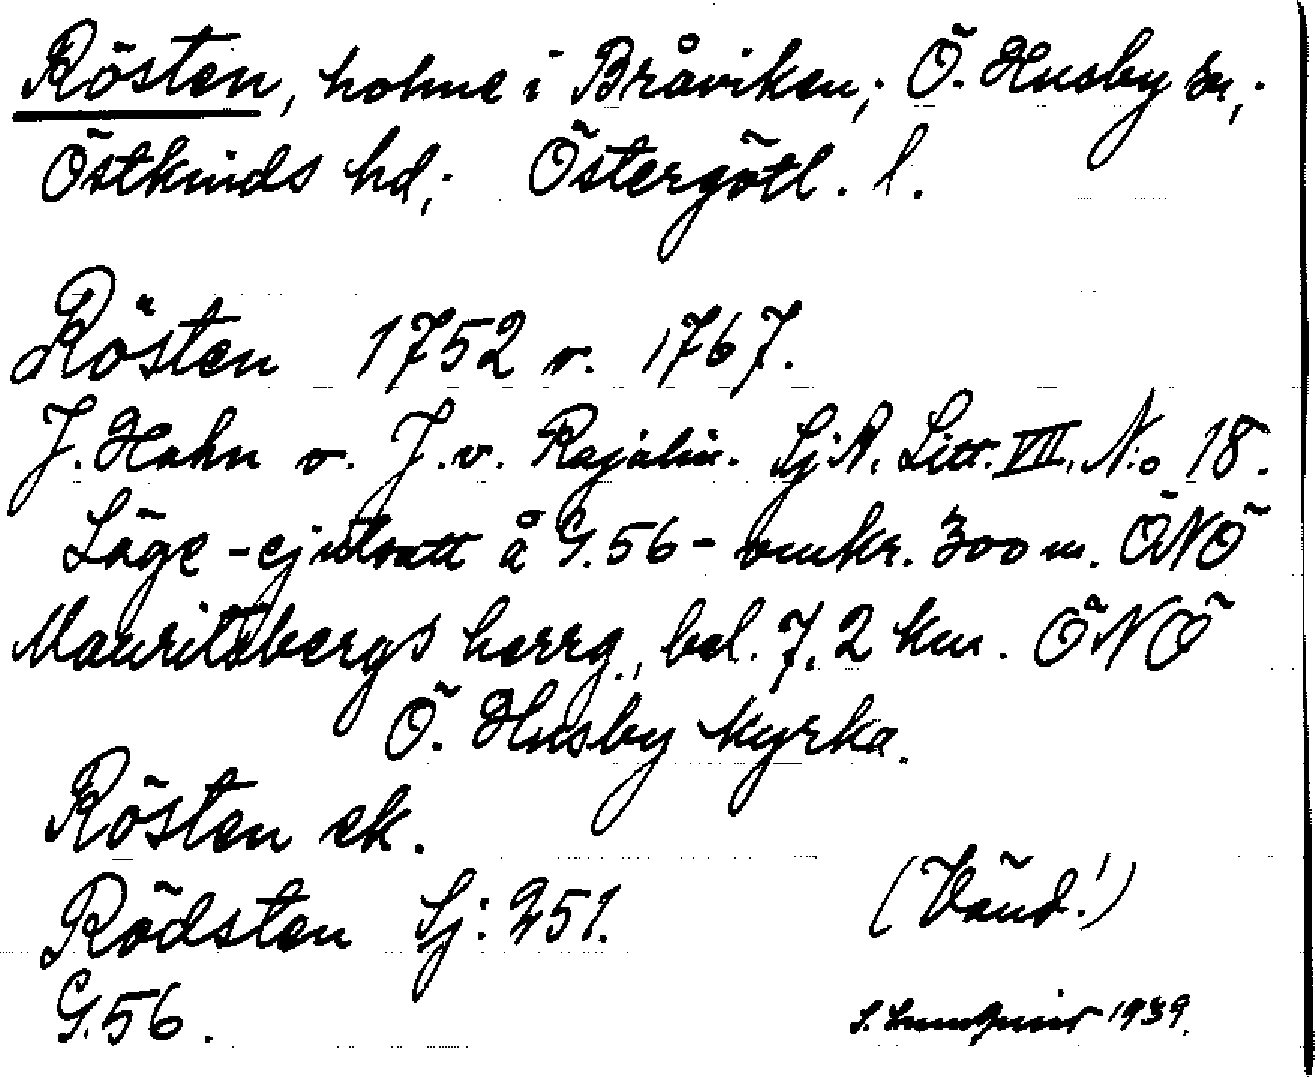 Rösten, holme i Bråviken; Ö. Husby sn,;
Östkinds hd,; Östergötl. l.
Rösten 1752 o. 1767.
J. Hahn o. J. v. Rajalin. SjA. Litt. VII. No 18.
Läge - ej utsatt å G. 56 - omkr. 300 m. ÖNÖ
Mauritsbergs herrg., bel. 7,2 km. ÖNÖ
Ö. Husby kyrka.
Rösten ek.
Rödsten Sj: 351.
(Vänd!)
G. 56.
S. Lundquist 1939.